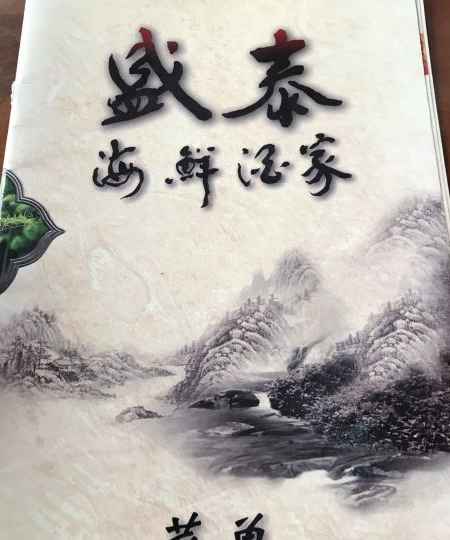 盛泰
海鲜酒家
菜单